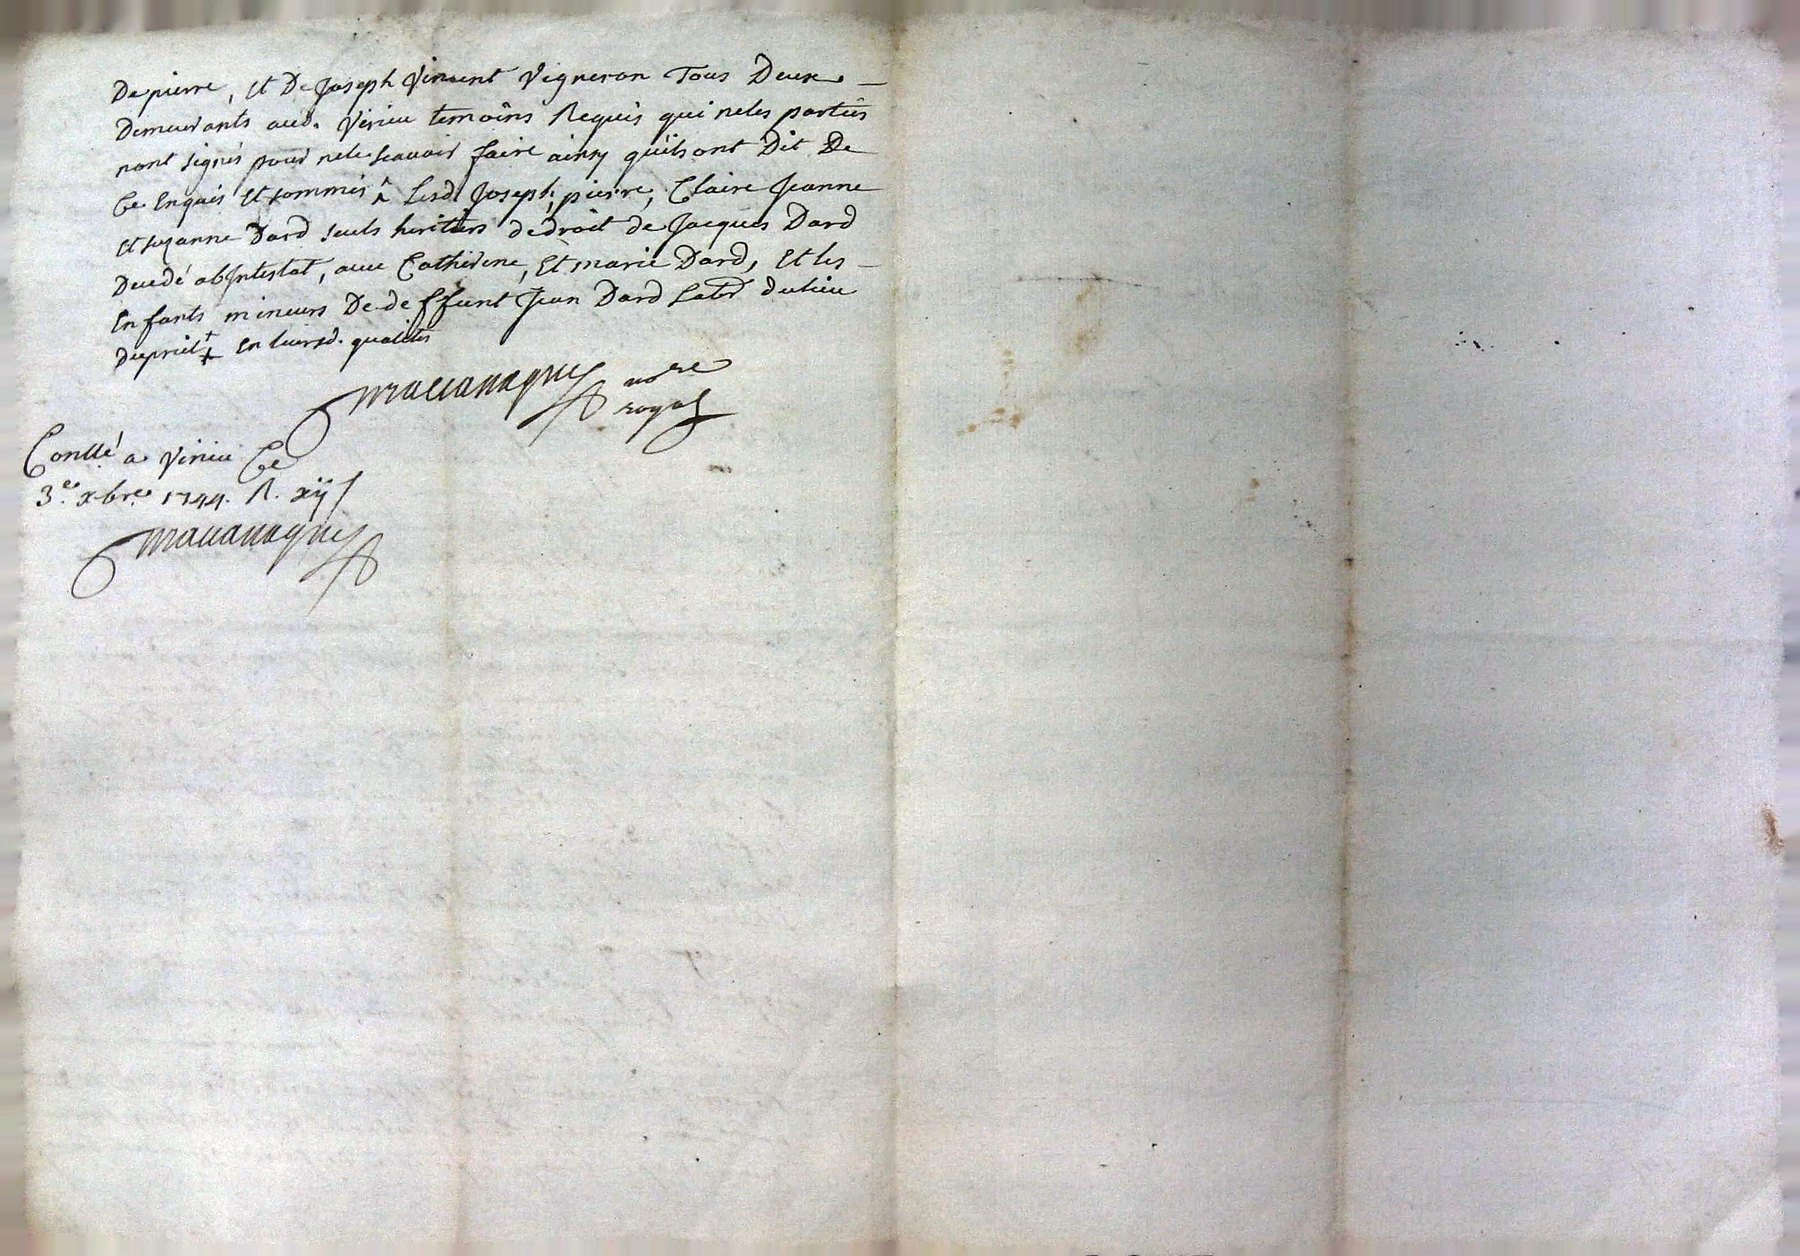 De pierre, et De Joseph Vincent Vigneron Tous Deux
Demeurants aud. Virieu temoins Requis qui ne les parties
nont signés pour ne le scavoir faire ainsy quils ont Dit De
Ce Enquis et sommés ^ Lesd. Joseph, pierre, Claire Jeanne
et suzanne Dard seuls heritiers de droit de Jacques Dard
Decedé abIntestat, avec Catherine, Et marie Dard, Et les
Enfants mineurs De deffunt Jean Dard Labr du lieu
En leursd. qualités
nore
royal
Conllé a Virieu Ce
3e. xbre. 1744. R. xij s